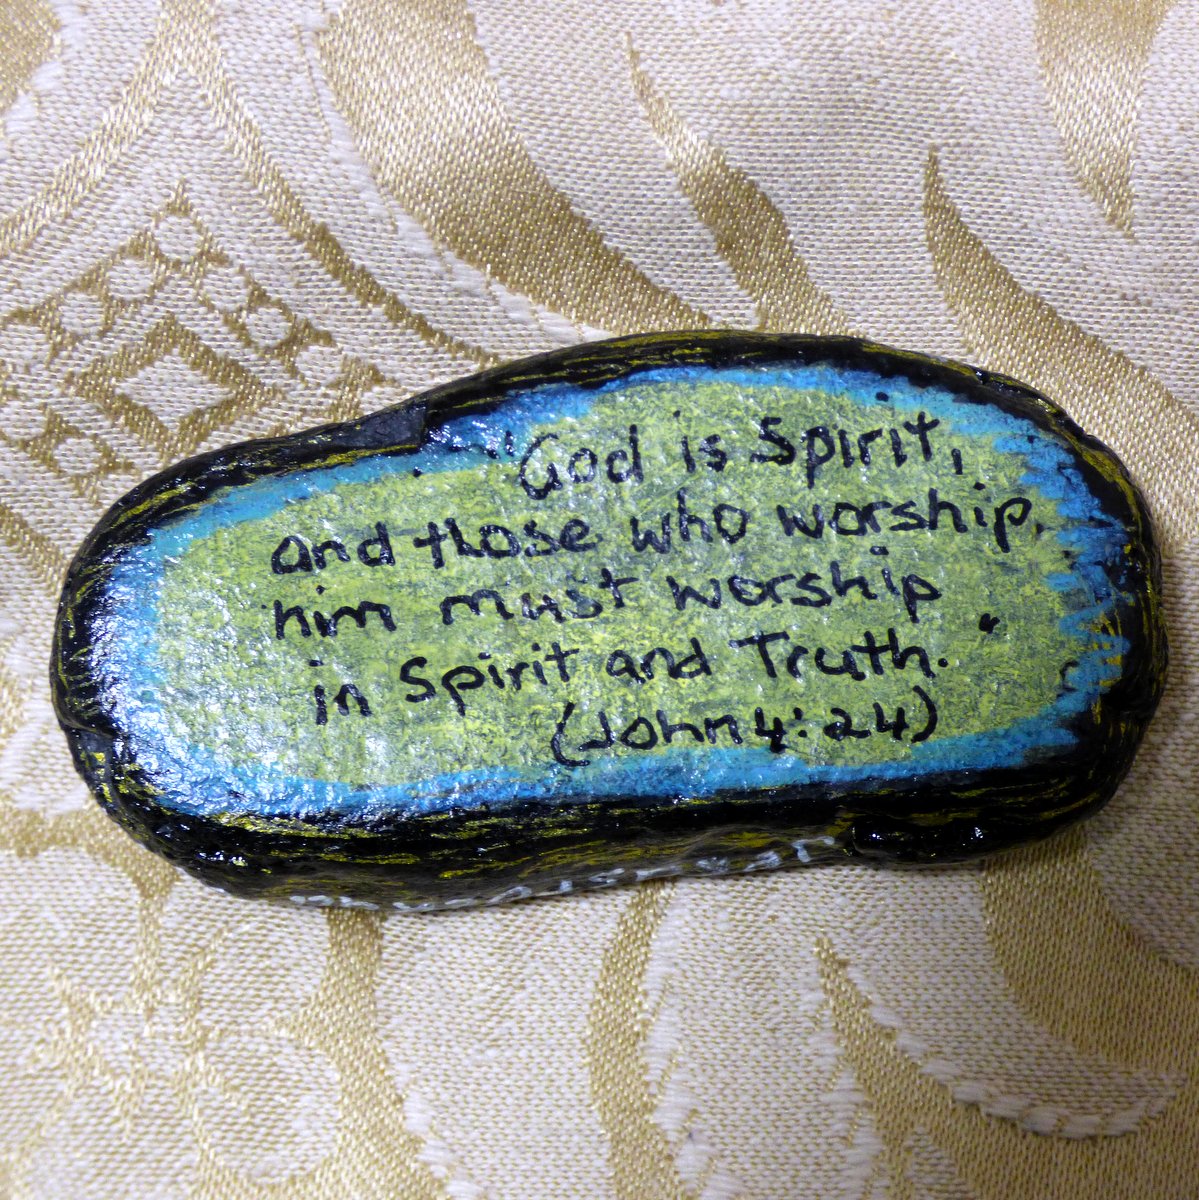 "God is Spirit,
and those who worship,
him must worship
in Spirit and Truth."
(John 4:24)